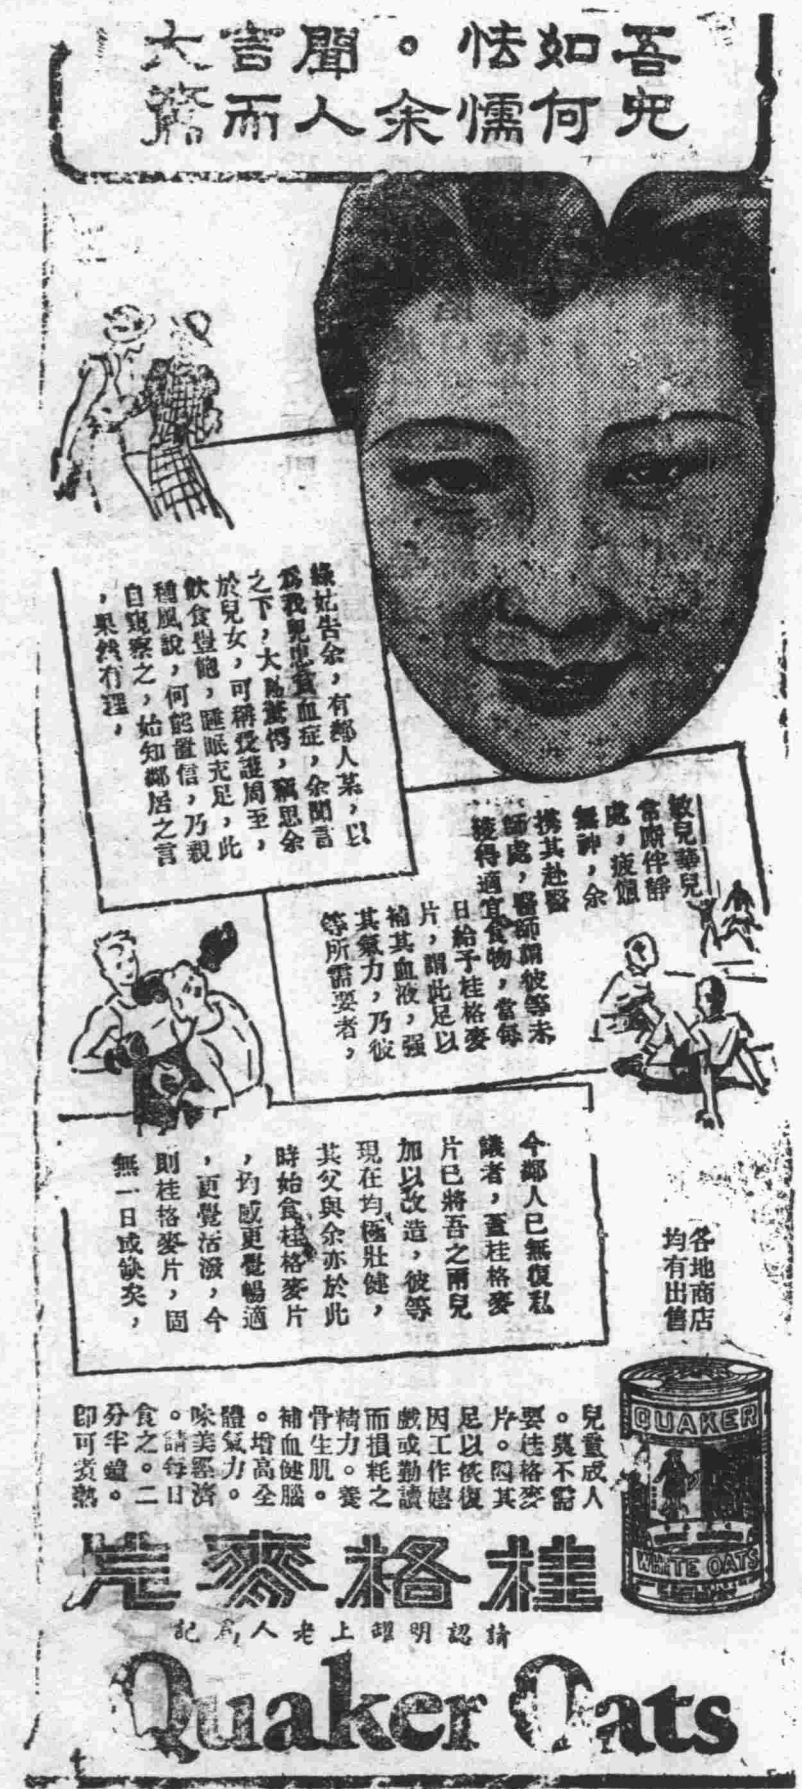 吾兒
如何
怯懦
。余
聞人
言而
大驚
綠姑告余，有鄰人某，以
為我兒患貧血症，余聞言
之下，大為驚愕，竊思余
於兒女，可稱愛護周至，
飲食豐飽，睡眠充足，此
種風說，何能置信，乃親
自窺察之，始知鄰居之言
，果然有理，
敏兒華兒
常願伴靜
處，疲憊
無神，余
携其赴醫
師處，醫師謂彼等未
獲得適宜食物，當每
日給予桂格麥
片，謂此足以
補其血液，强
其氣力，乃彼
等所需要者，
今鄰人已無復私
議者，蓋桂格麥
片已將吾之兩兒
加以改造，彼等
現在均極壯健，
其父與余亦於此
時始食桂格麥片
，均感更覺暢適
，更覺活潑，今
則桂格麥片，固
無一日或缺矣，
各地商店
均有出售
兒童成人
。莫不需
要桂格麥
片。因其
足以恢復
因工作嬉
戲或勤讀
而損耗之
精力。養
骨生肌。
補血健腦
。增高全
體氣力。
味美經濟
。請每日
食之。二
分半鐘。
即可煮熟
QUAKER
WHITE OATS
桂格麥片
請認明罐上老人為記
Quaker Oats